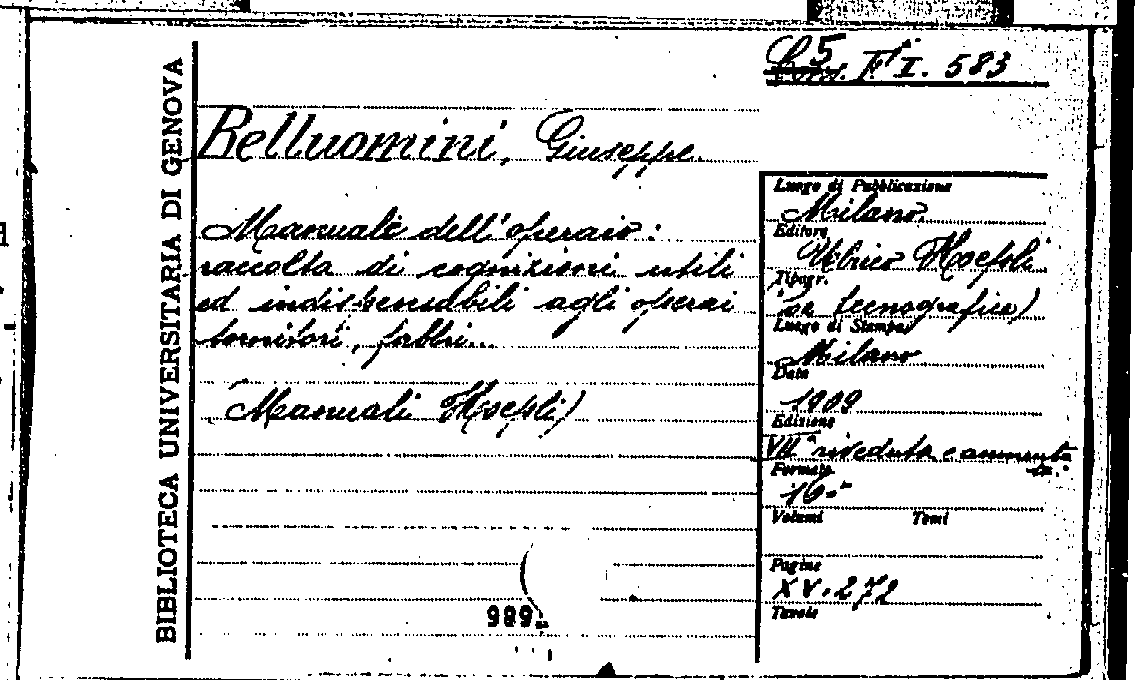 5. F. I. 583
BIBLIOTECA UNIVERSITARIA DI GENOVA
Belluomini, Giuseppe.
Manuale dell'operaio:
raccolta di cognizioni utili
ed indispensabili agli operai
tornitori, fabbri...
(Manuali Hoepli)
989
Luogo di Pubblicazione
Milano
Editore
Ulrico Hoepli
Tipogr.
tecnografica)
Luogo di Stampa
Milano
Data
1909
Edizione
VIIa riveduta e aumenta
ta.
Formato
16°
Volumi Tomi
Pagine
XV. 272
Tavole